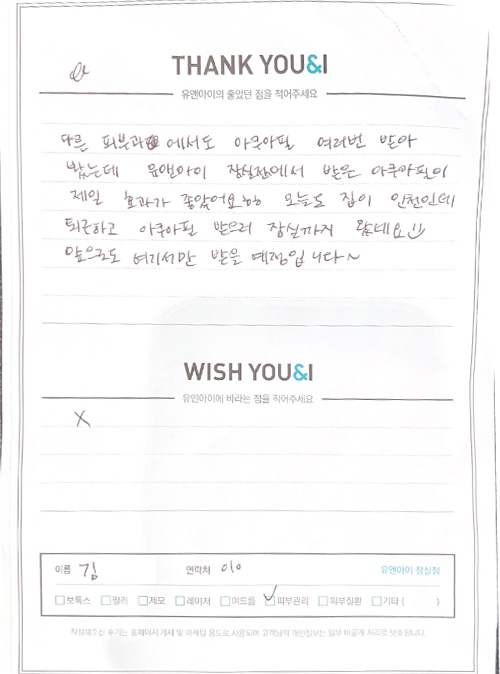 THANK YOU&I
유앤아이의 좋았던 점을 적어주세요
다른 피부과에서도 아쿠아필 여러번 받아
봤는데 유앤아이 잠실점에서 받은 아쿠아필이
제일 효과가 좋았어요ㅎㅎ 오늘도 집이 인천인데
퇴근하고 아쿠아필 받으러 잠실까지 왔네요
앞으로도 여기서만 받을 예정입니다~
WISH YOU&I
유앤아이에 바라는 점을 적어주세요
X
이름 김 연락처 010 유앤아이 잠실점
보톡스 필러 제모 레이저 여드름 피부관리 피부질환 기타 ( )
작성해주신 후기는 홈페이지 게재 및 마케팅 용도로 사용되며 고객님의 개인정보는 일부 비공개 처리로 보호됩니다.